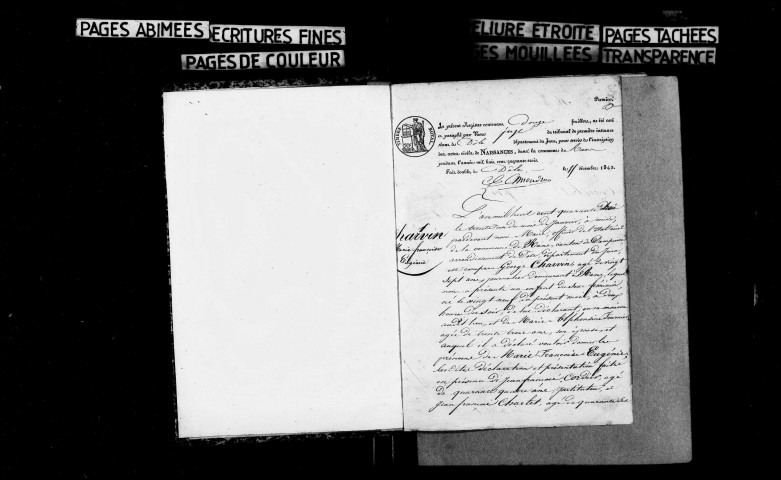 PAGES ABIMEES
ECRITURES FINES
PAGES DE COULEUR
ELIURE ETROITE
PAGES TACHEES
ES MOUILLEES
TRANSPARENCE
Premier
Le présent Registre contenant douze feuillets, a été coté
et paraphé par Nous juge du tribunal de première instance
séant à Dole département du Jura, pour servir à l'inscription
des actes civils de NAISSANCES, dans la commune de
pendant l'année mil huit cent quarante-trois
Fait double, à Dole le 15 décembre 1842.
Charvin
Marie françoise
Eugénie
L'an mil huit cent quarante trois
le trente du mois de Janvier, à midi,
pardevant nous Maire, officier de l'état civil
de la commune de canton de Dampierre
arrondissement de Dole département du Jura,
est comparu George Charvin, agé de vingt
sept ans, demeurant à lequel
nous a présenté un enfant du sexe féminin,
né le vingt neuf du présent mois, à deux
heures du soir, de lui déclarant, en sa maison
audit lieu, et de Marie Stéphanine
agée de trente trois ans, son épouse, et
auquel il a déclaré vouloir donner les
prénoms de Marie Françoise Eugénie,
les dites déclaration et présentation faites
en présence de Jean francois Cordier, agé
de quarante quatre ans, instituteur, et
Jean francois Charlet, agé de quarante